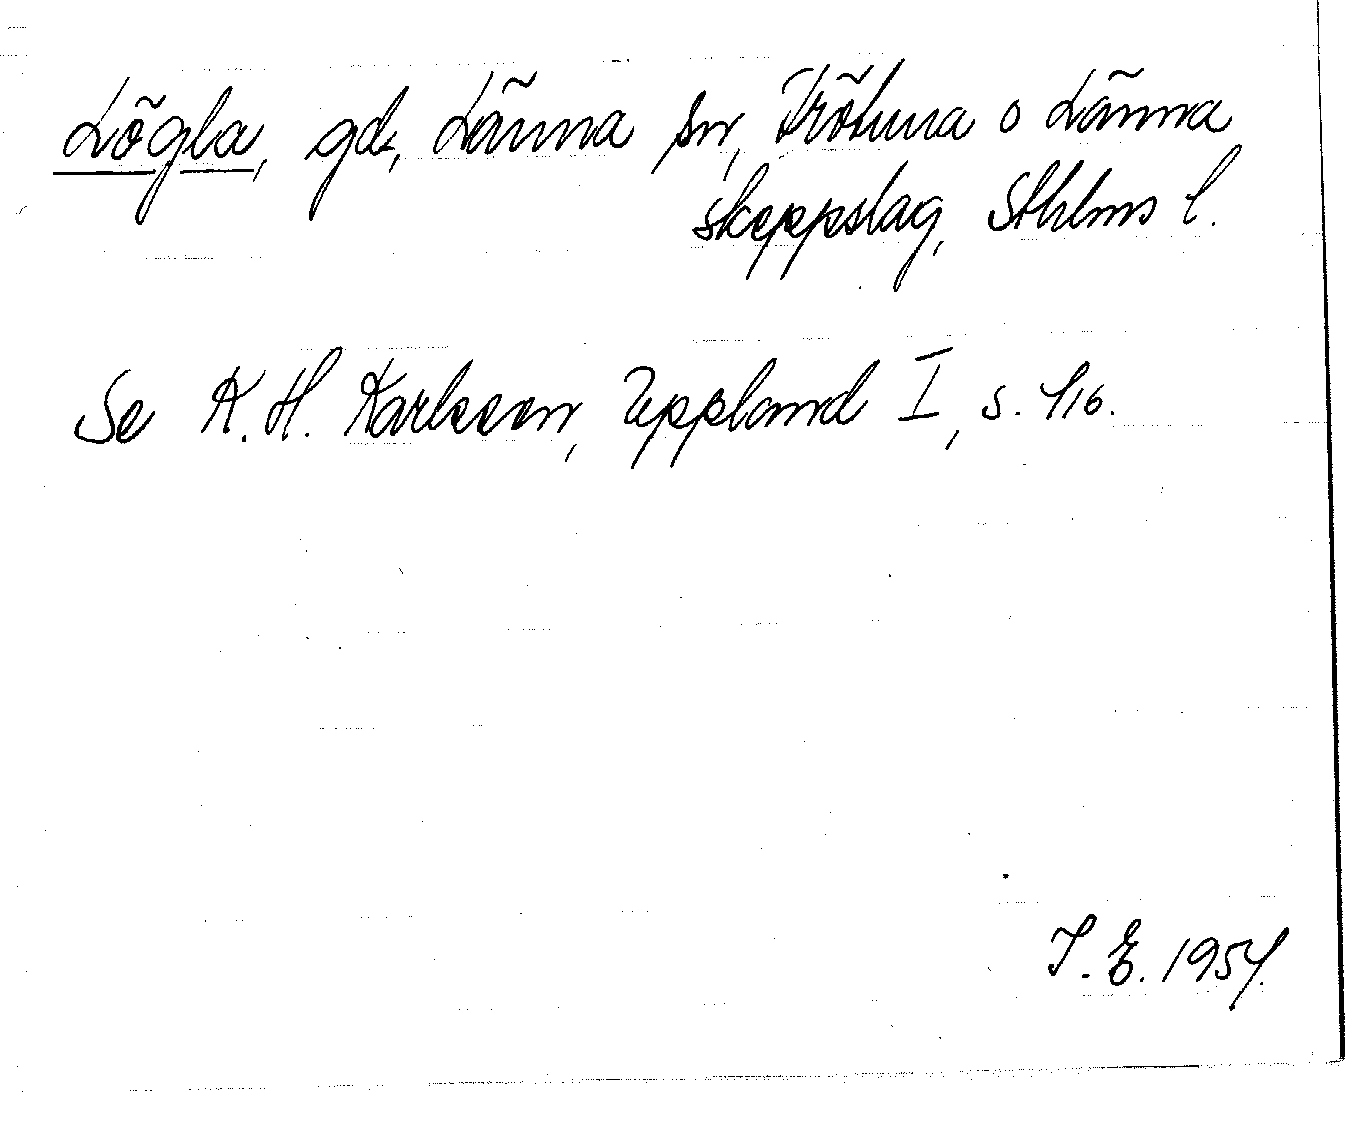 Lögla, gd, Länna sn, Frötuna o Länna
skeppslag, Sthlms l.
Se K. H. Karlsson, Uppland I, s. 416.
I. E. 1954.